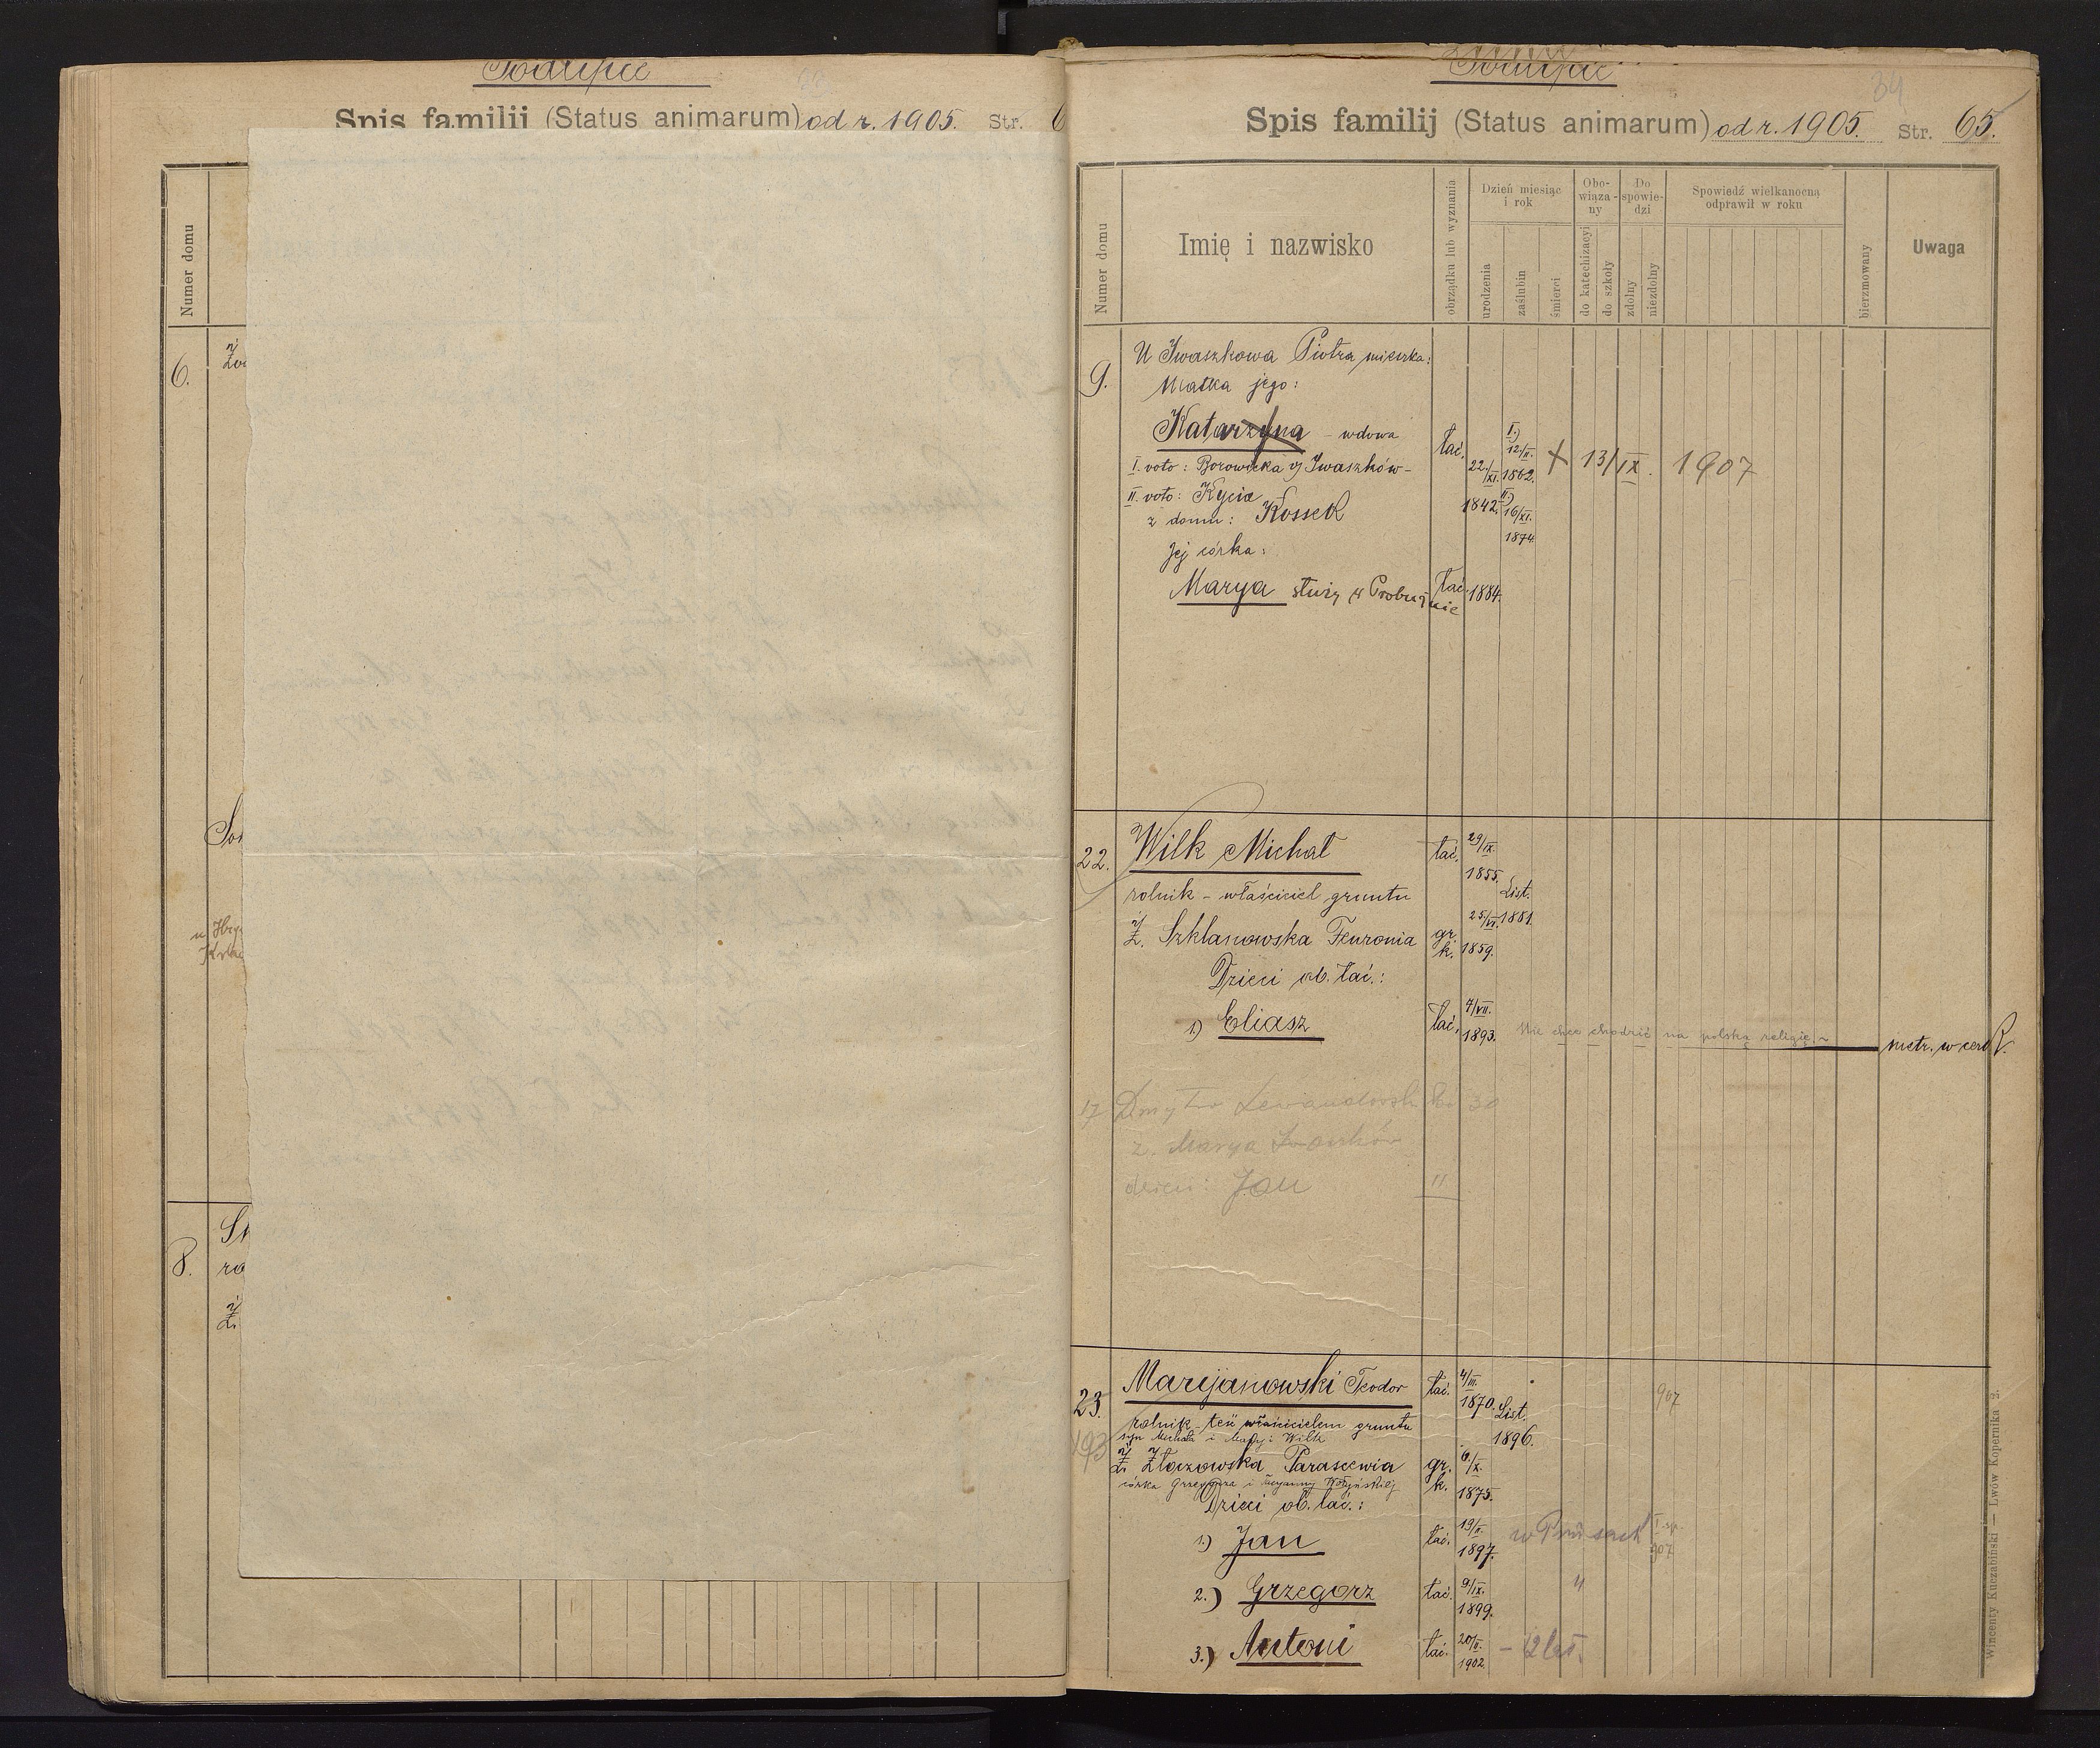 Spis familii (Status animarum) od r. 1905. Str. 6
Numer domu
6.
8.
34
Spis familij (Status animarum) od r. 1905. Str. 65.
Numer domu
Imię i nazwisko
obrządku lub wyznania
Dzień miesiąc i rok
urodzenia
zaślubin
śmierci
Obo-wiąza-ny
do katechizacyi
do szkoły
Do spowie-dzi
zdolny
niezdolny
Spowiedź wielkanocną odprawił w roku
bierzmowany
Uwaga
9. U Iwaszkowa Piotra mieszka:
Matka jego:
Katarzyna – wdowa łać. 22/XI. 1842. I.) 12/II. 1862. II.) 16/XI. 1874. + 13/IX. 1907
I. voto: Borowicka v Iwaszków –
II. voto: Kycia
z domu: Kossek
Jej córka:
Marya służy w Probużnie łać. 1884.
22. Wilk Michał łać. 29/IX. 1855.
rolnik – właściciel gruntu List. 1881.
Ż. Szklanowska Feuronia gr. k. 25/VI. 1859.
Dzieci ob. łać.:
1) Eliasz łać. 7/VII. 1893. Nie chce chodzić na polską religię. ~ metr. w cer
17 Dmytro Lewandowsk 30
ż. Marya Iwaszków
dzieci: Jan 11
23. Marcjanowski Teodor łać. 4/III. 1870. 907
rolnik – teść właścicielem gruntu List. 1896.
syn Michała i Maryi Wilk
193
Ż. Złoczowska Parascewia gr. k. 6/X. 1875.
córka Grzegorza i
Dzieci ob. łać.:
1.) Jan łać. 19/II. 1897. w Prusach I. sp. 907
2.) Grzegorz łać. 9/IX. 1899. "
3.) Antoni łać. 20/II. 1902 – 12 let.
Wincenty Kuczabiński — Lwów Kopernika 2.